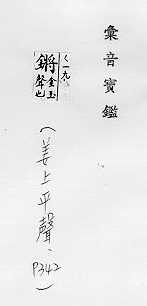 彙音寶鑑
ㄑㄧㄤ
鏘金玉
聲也
(姜上平聲、P342)